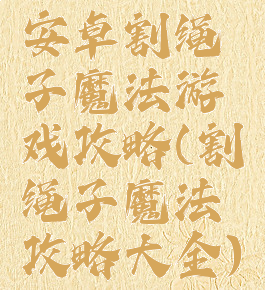 安卓割绳
子魔法游
戏攻略(割
绳子魔法
攻略大全)